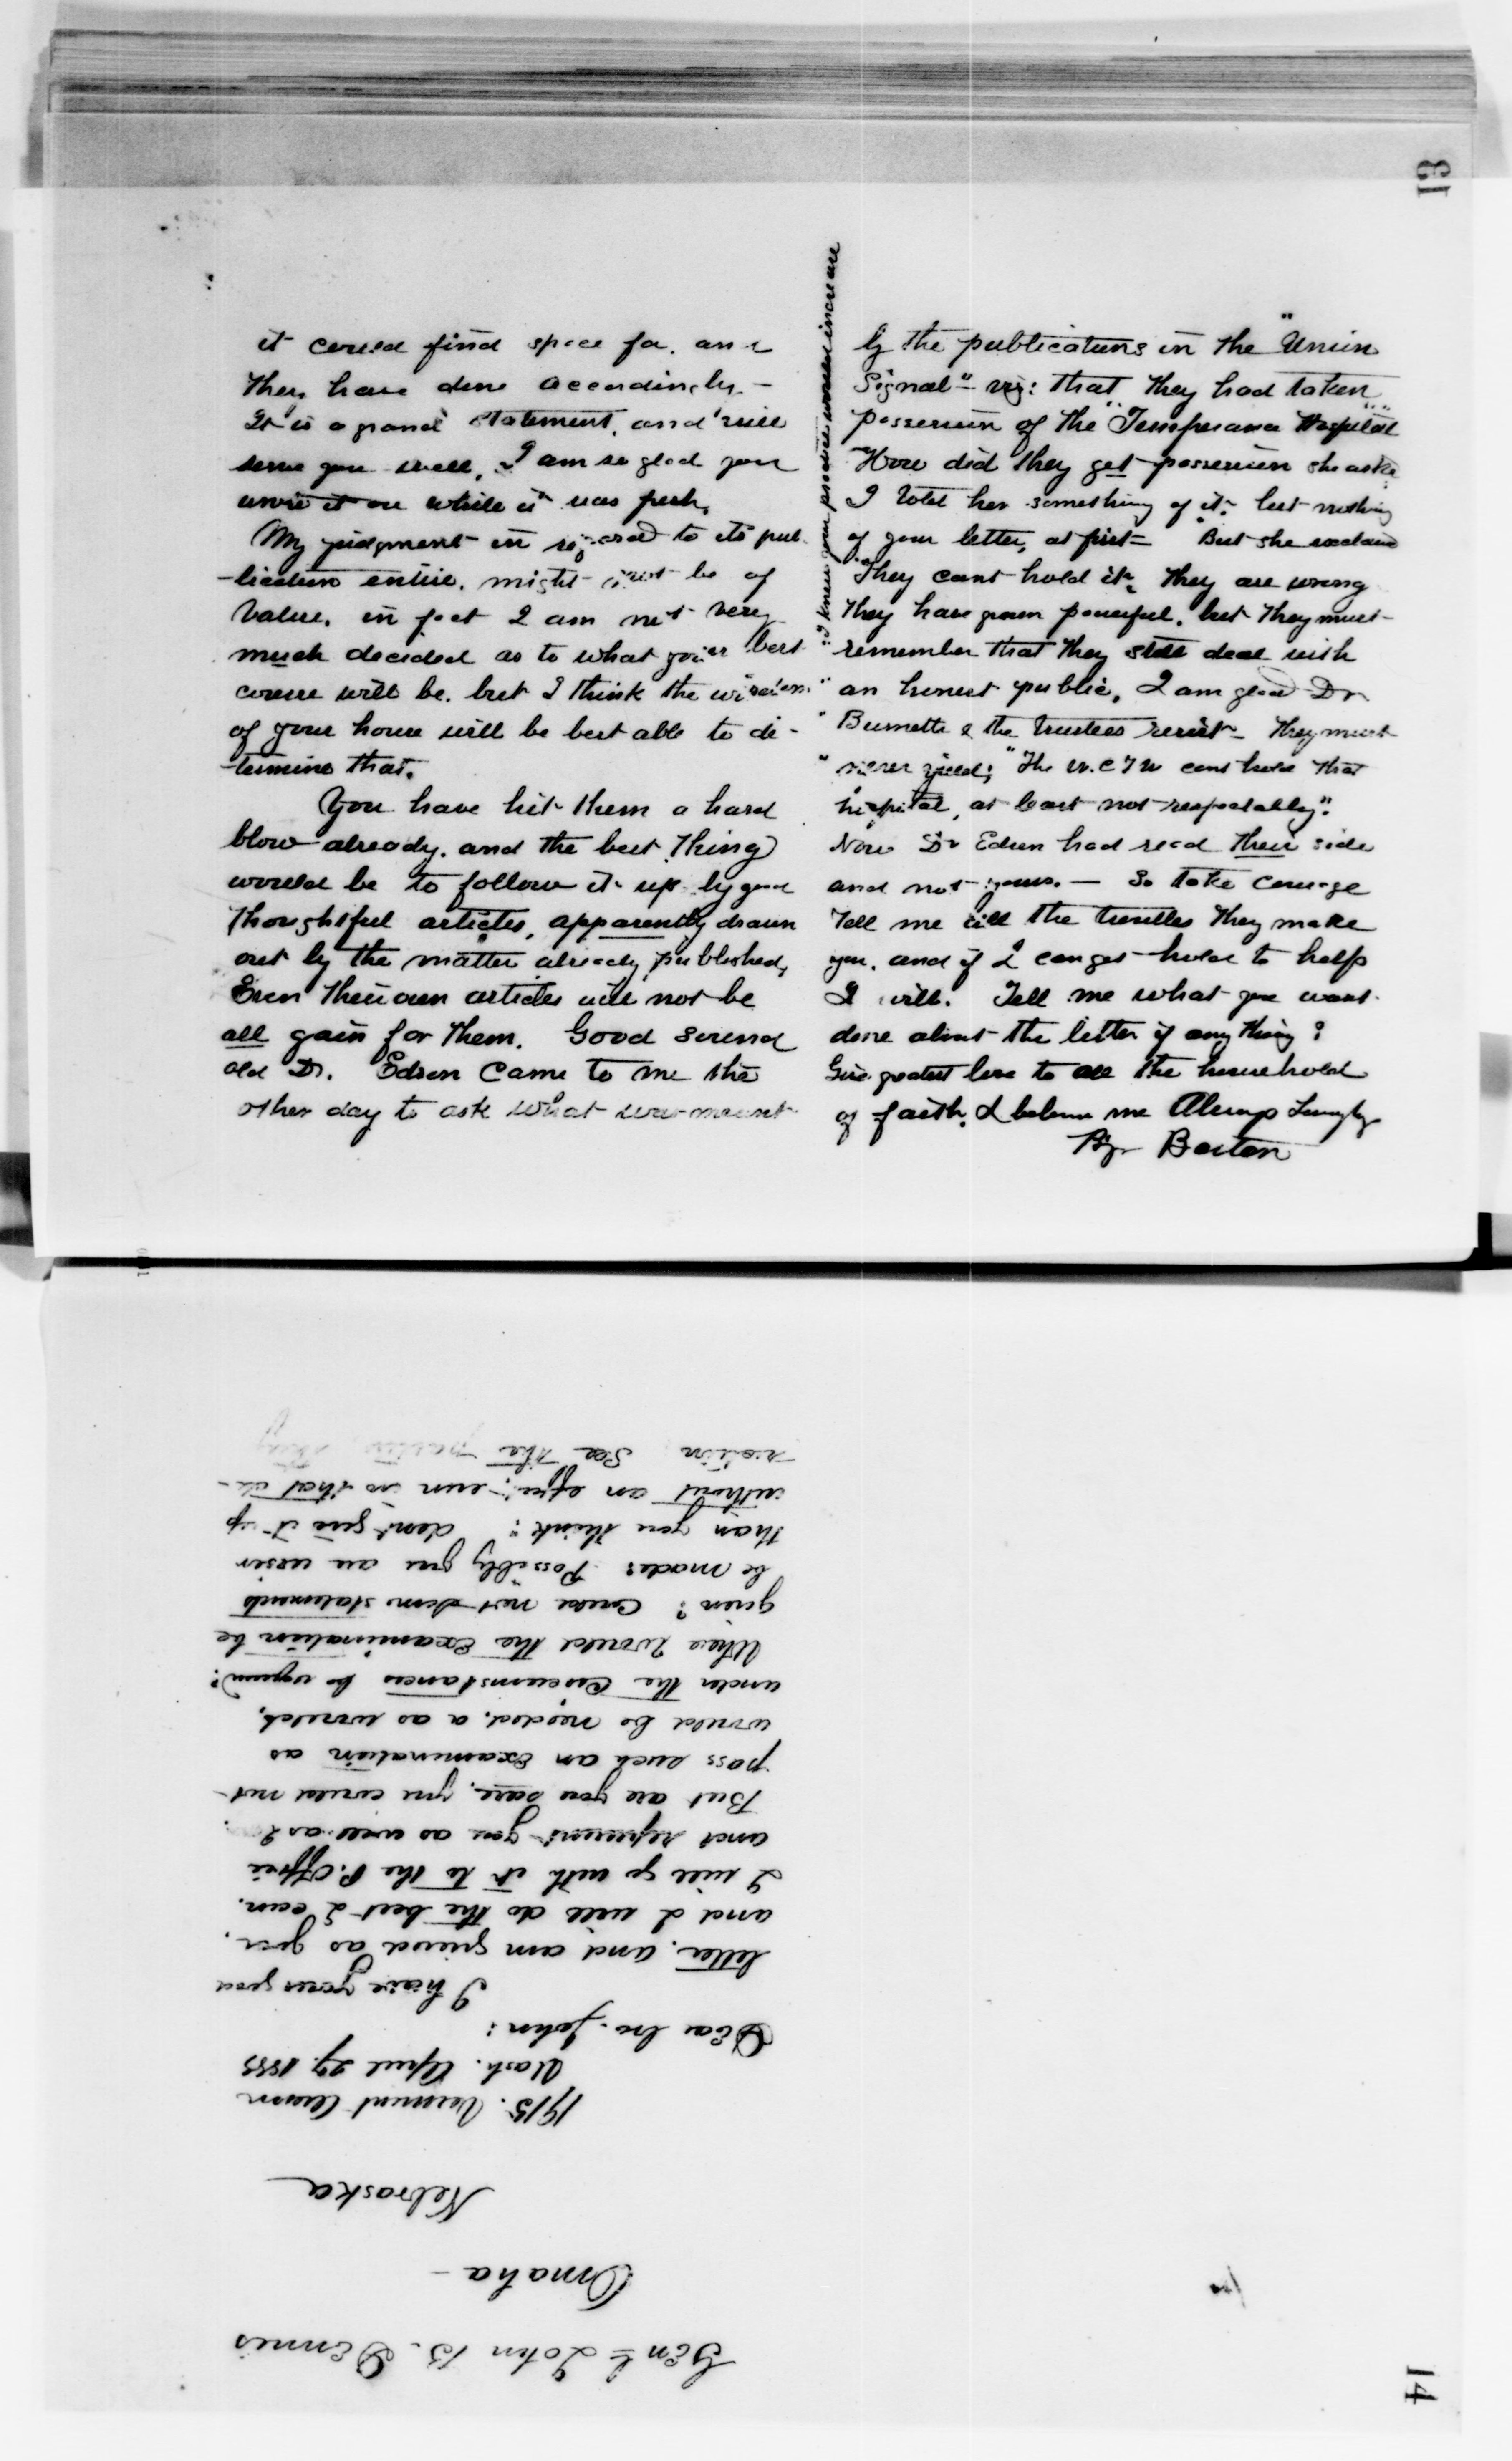 13
it could find space for. and
they have done accordingly. —
It is a grand statement, and will
serve you well, I am so glad you
wrote it on while it was fresh.
My judgment in regard to its pub-
-lication entire. might not be of
value. in fact I am not very
much decided as to what your best
course will be. but I think the wisdom
of your house will be best able to de-
-termine that.
You have hit them a hard
blow already. and the best thing
would be to follow it up by good
thoughtful articles, apparently drawn
out by the matter already published,
Even their own articles will not be
all gain for them. Good sound
old Dr. Edson came to me the
other day to ask what was meant
by the publications in the "Union
Signal" viz: that they had taken
possession of the "Temperance Hospital"
"How did they get possession she asks
I told her something of it. but nothing
of your letter, at first — But she exclaimed
"They cant hold it. They are wrong
They have grown powerful. but they must
"remember that they still deal with
"an honest public. I am glad Dr
"Burnette & the trustees resist — They must
"never yield; "The W.C.T.U cant hold that
hospital, at least not respectably."
Now Dr Edson had read their side
and not yours. — So take courage
Tell me all the troubles they make
you. and if I can get hold to help
I will. Tell me what you want
done about the letter if any thing?
Give greatest love to all the household
of faith. & believe me Always Lovingly
Barton
"I knew your practice would increase
14
Genl John B. Dennis
Omaha —
Nebraska
1915. Vermont Avenue
Wash. April 29. 1888
Dear Bro. John:
I have your good
letter. and am grieved as you.
and I will do the best I can.
I will go with it to the P. Office
and represent you as well as I
But are you sure, you could not
pass such an examination as
would be needed. or as would,
under the circumstances be required?
Where would the examination be
given? Could not some statements
be made? Possibly you are wiser
than you think: dont give it up
without an effort, even in that di-
rection See the